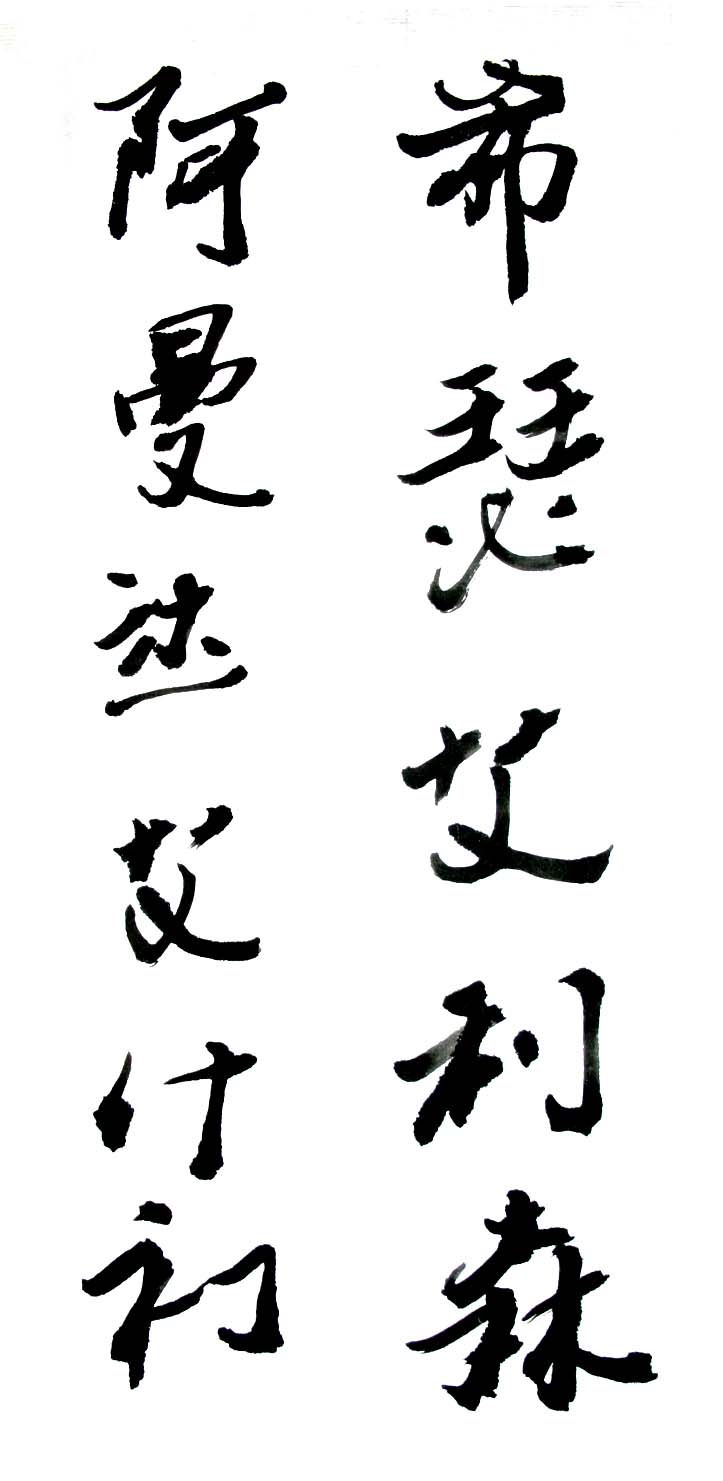 希瑟艾利森
阿曼达艾什初